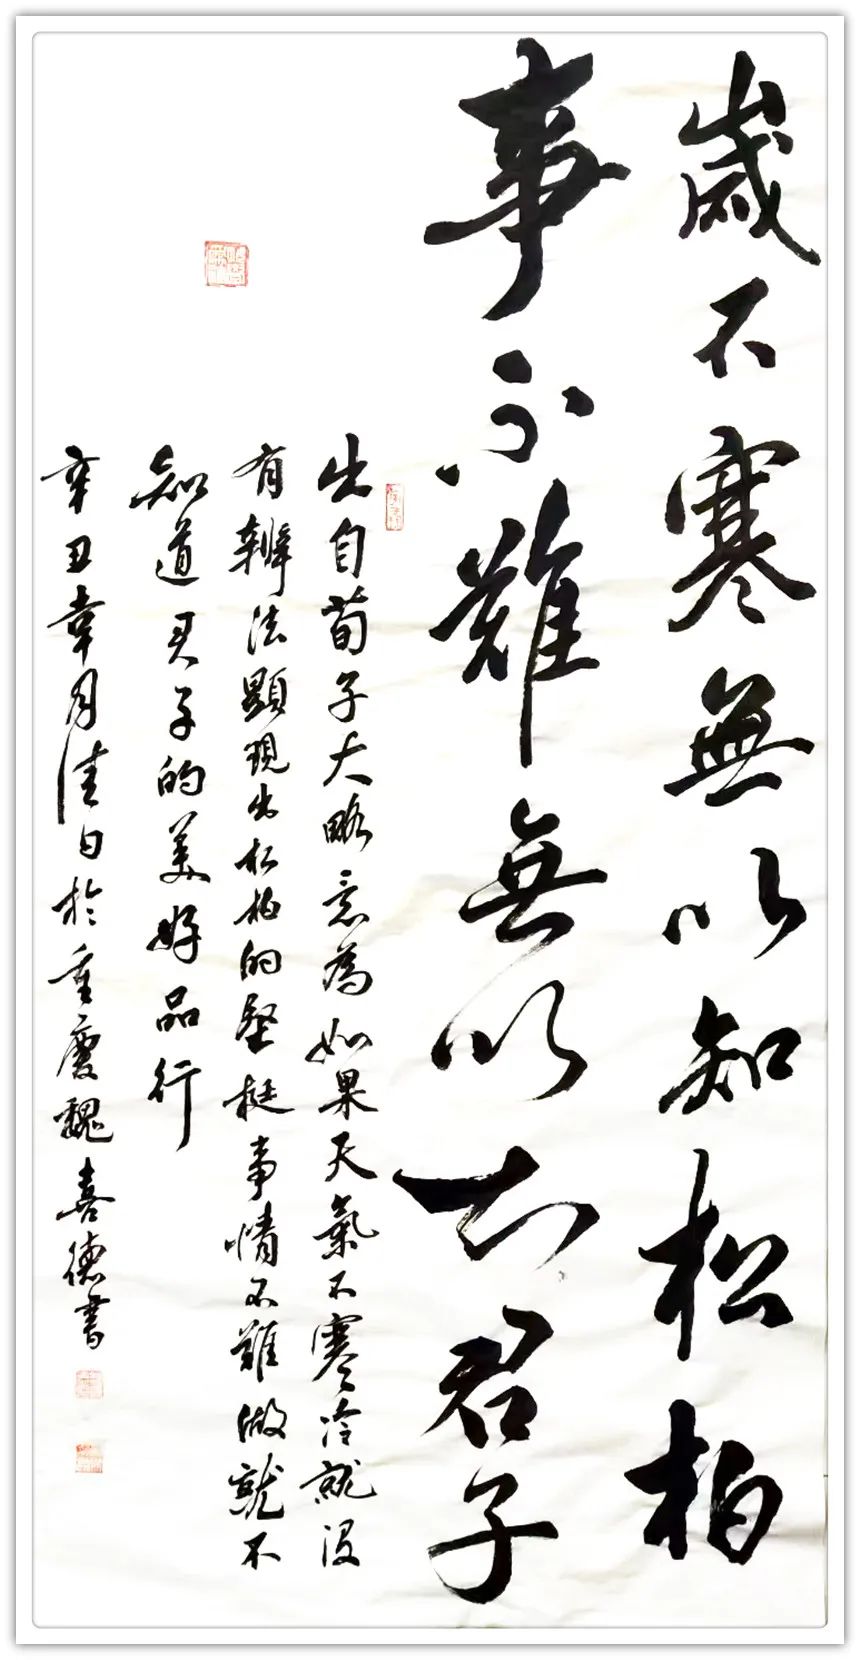 歲不寒無以知松柏
事不難無以知君子
出自荀子大略意為如果天氣不寒冷就没
有辦法顯現出松柏的堅挺事情不難做就不
知道君子的美好品行
辛丑辜月佳日於重慶魏喜德書